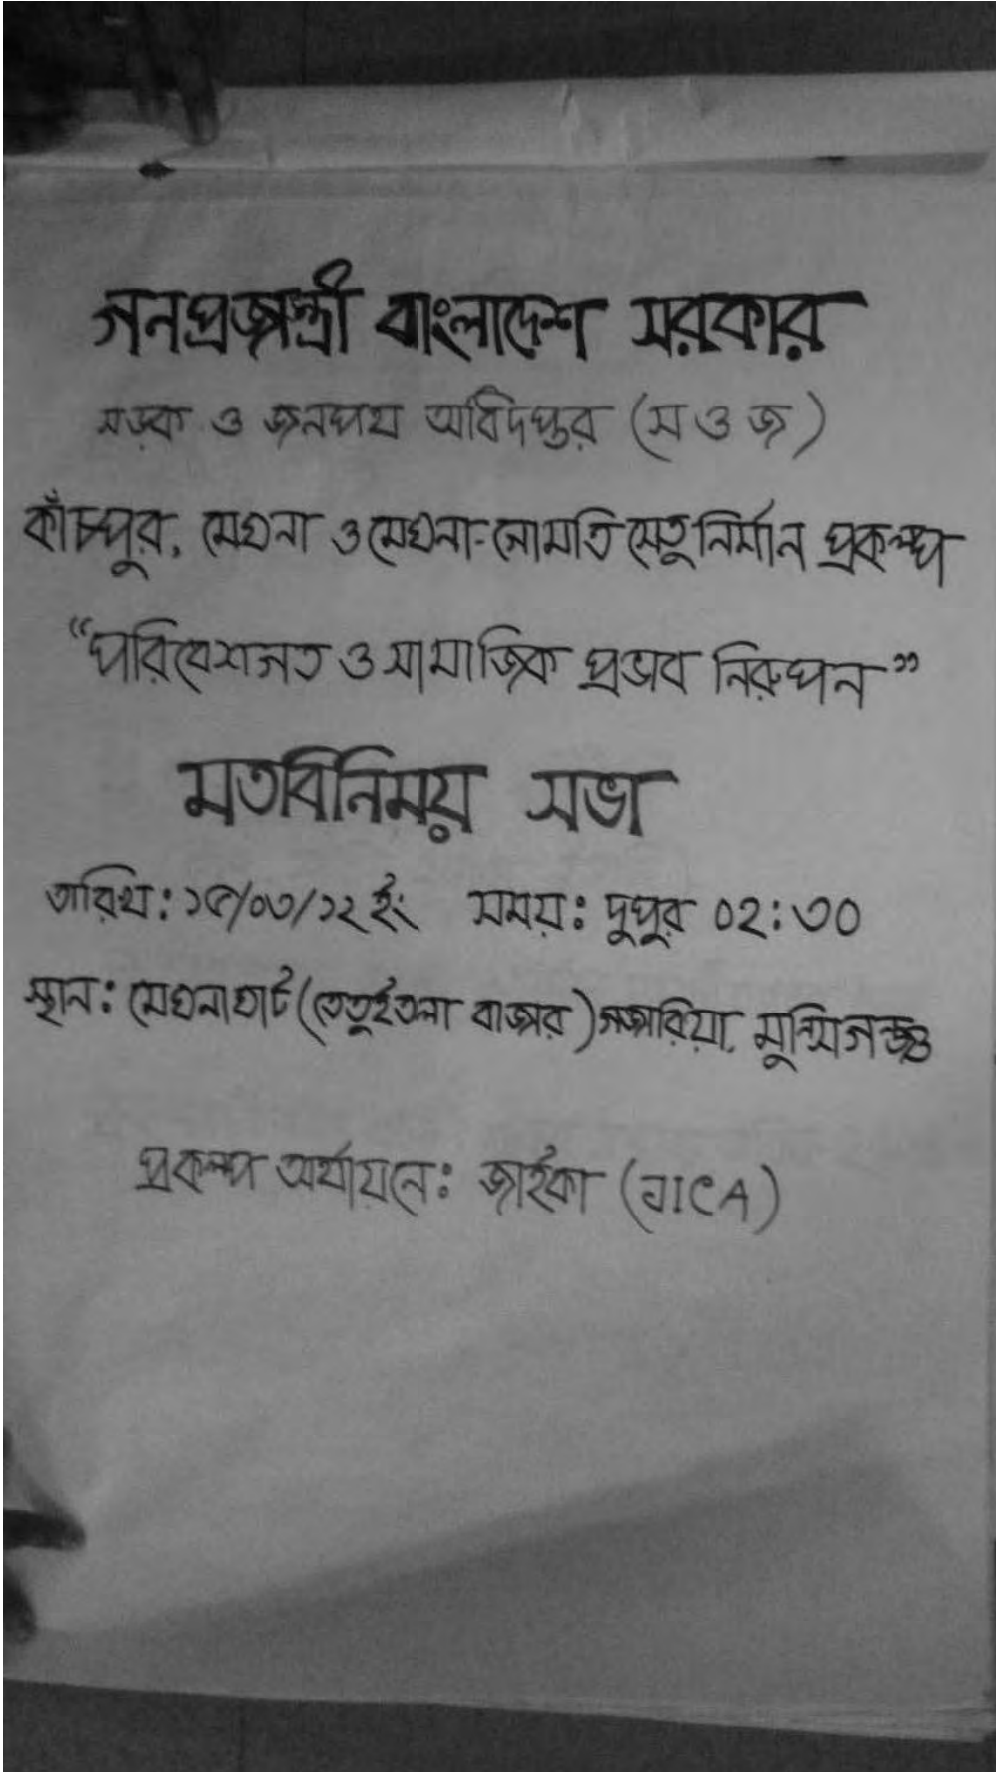 গনপ্রজাতন্ত্রী বাংলাদেশ সরকার
সড়ক ও জনপথ অধিদপ্তর (স ও জ)
কাঁচপুর, মেঘনা ও মেঘনা-গোমতি সেতু নির্মান প্রকল্প
“পরিবেশগত ও সামাজিক প্রভাব নিরুপন”
মতবিনিময় সভা
তারিখ: ১৫/০৩/১২ ইং সময়: দুপুর ০২:৩০
স্থান: মেঘনাঘাট (তেতুইতলা বাজার) গজারিয়া, মুন্সিগন্জ
প্রকল্প অর্থায়নে: জাইকা (JICA)